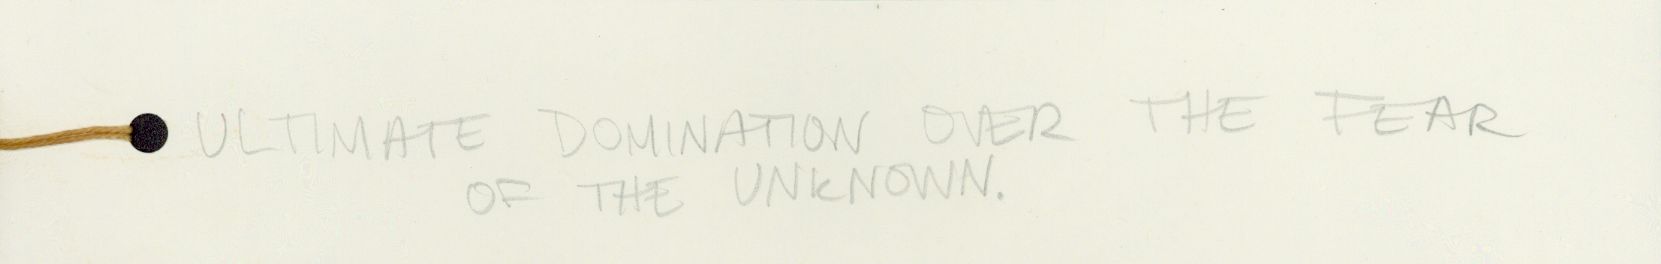 ULTIMATE DOMINATION OVER THE FEAR
OF THE UNKNOWN.